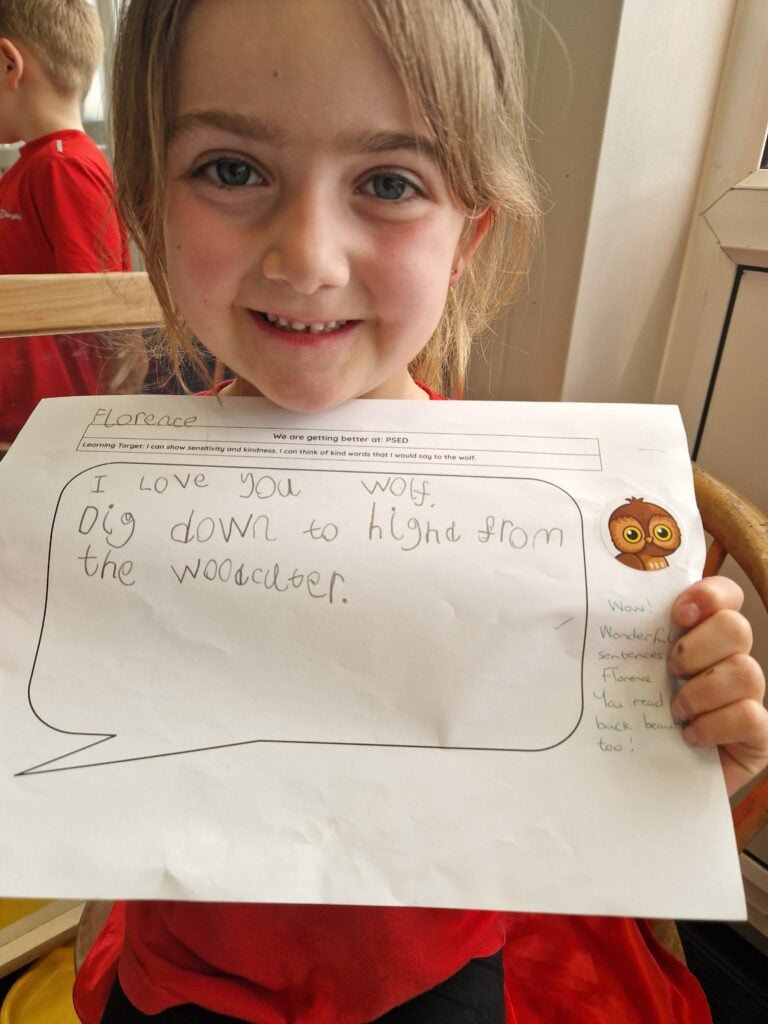 Florence
We are getting better at: PSED
Learning Target: I can show sensitivity and kindness. I can think of kind words that I would say to the wolf.
I Love you wolf.
Dig down to highd from
the woodcuter.
Wow!
Wonderful
sentences
Florence.
You read
back
too!